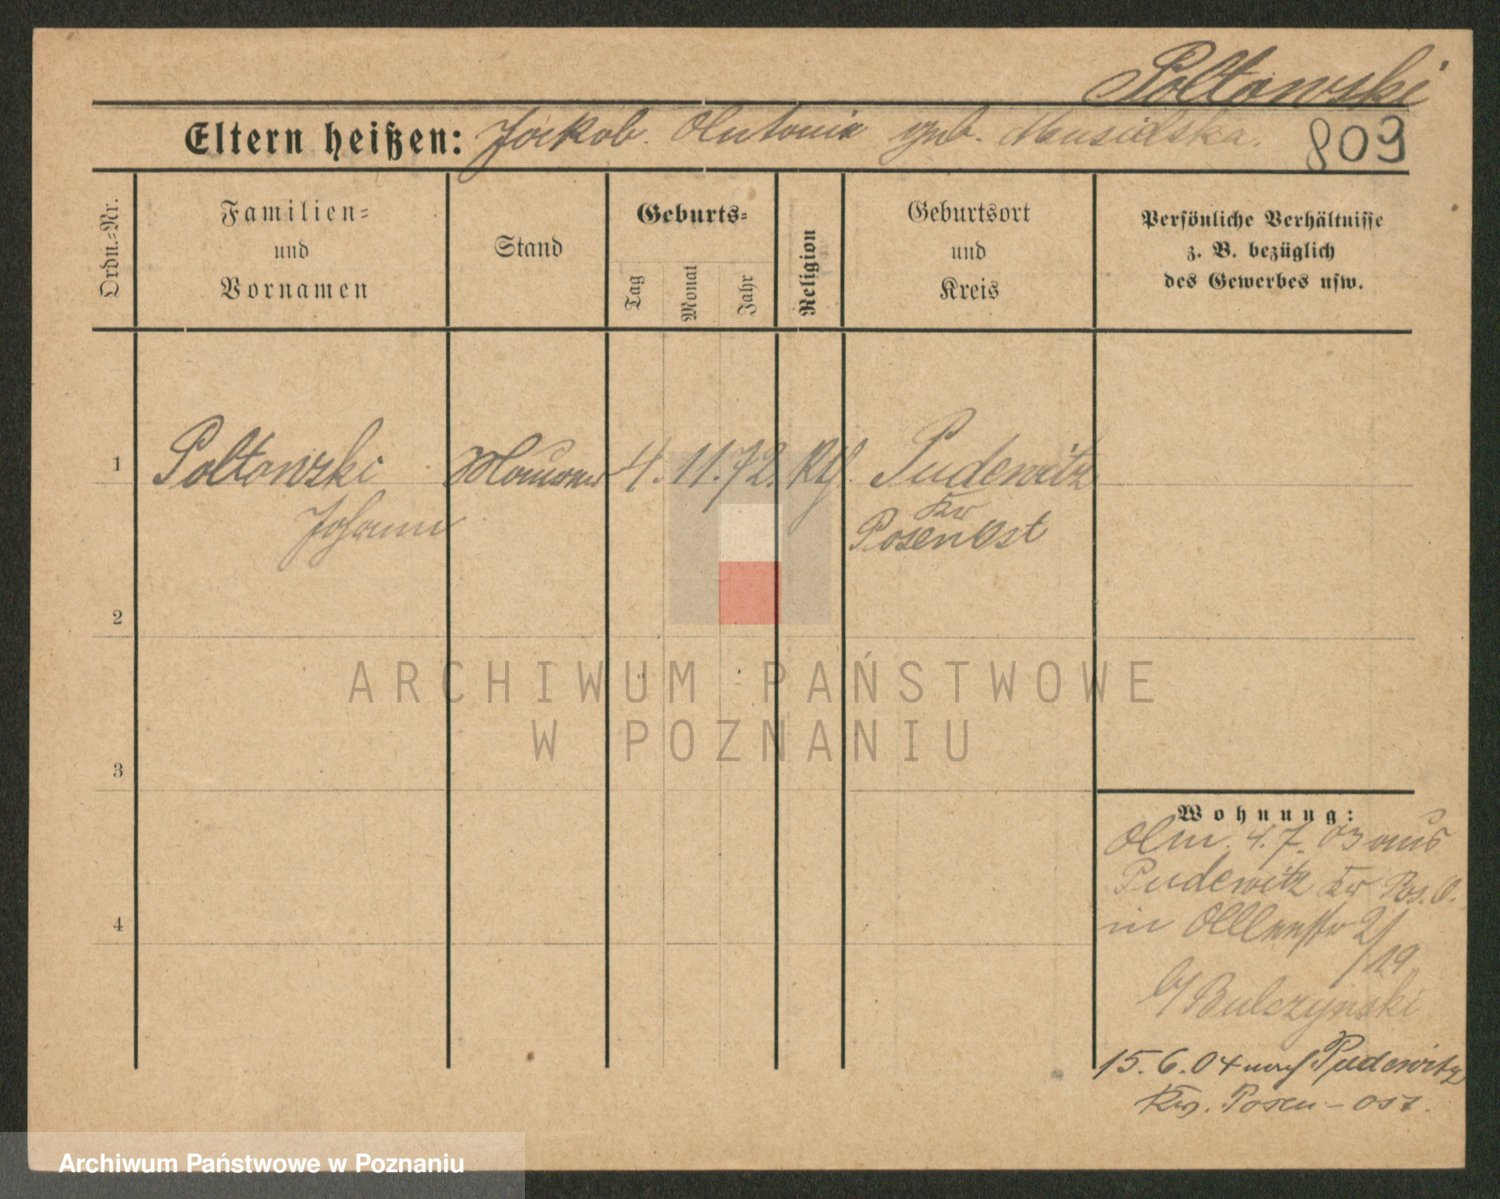 Poltowski
Eltern heißen: Jakob. Antonie geb. Musielska.
809
Ordn.=Nr.
Familien=
und
Vornamen
Stand
Geburts=
Tag
Monat
Jahr
Religion
Geburtsort
und
Kreis
Persönliche Verhältnisse
z. B. bezüglich
des Gewerbes usw.
1 Poltowski Maurer 4. 11. 72. Pudewitz
Johann Kr
Posen Ost
2
3
4
Wohnung:
4. 7. 03 aus
Pudewitz Kr Pos. O.
in 2/
19
b/ Bulczynski
15.6.04 nach Pudewitz
Krs. Posen-Ost.
ARCHIWUM PAŃSTWOWE
W POZNANIU
Archiwum Państwowe w Poznaniu